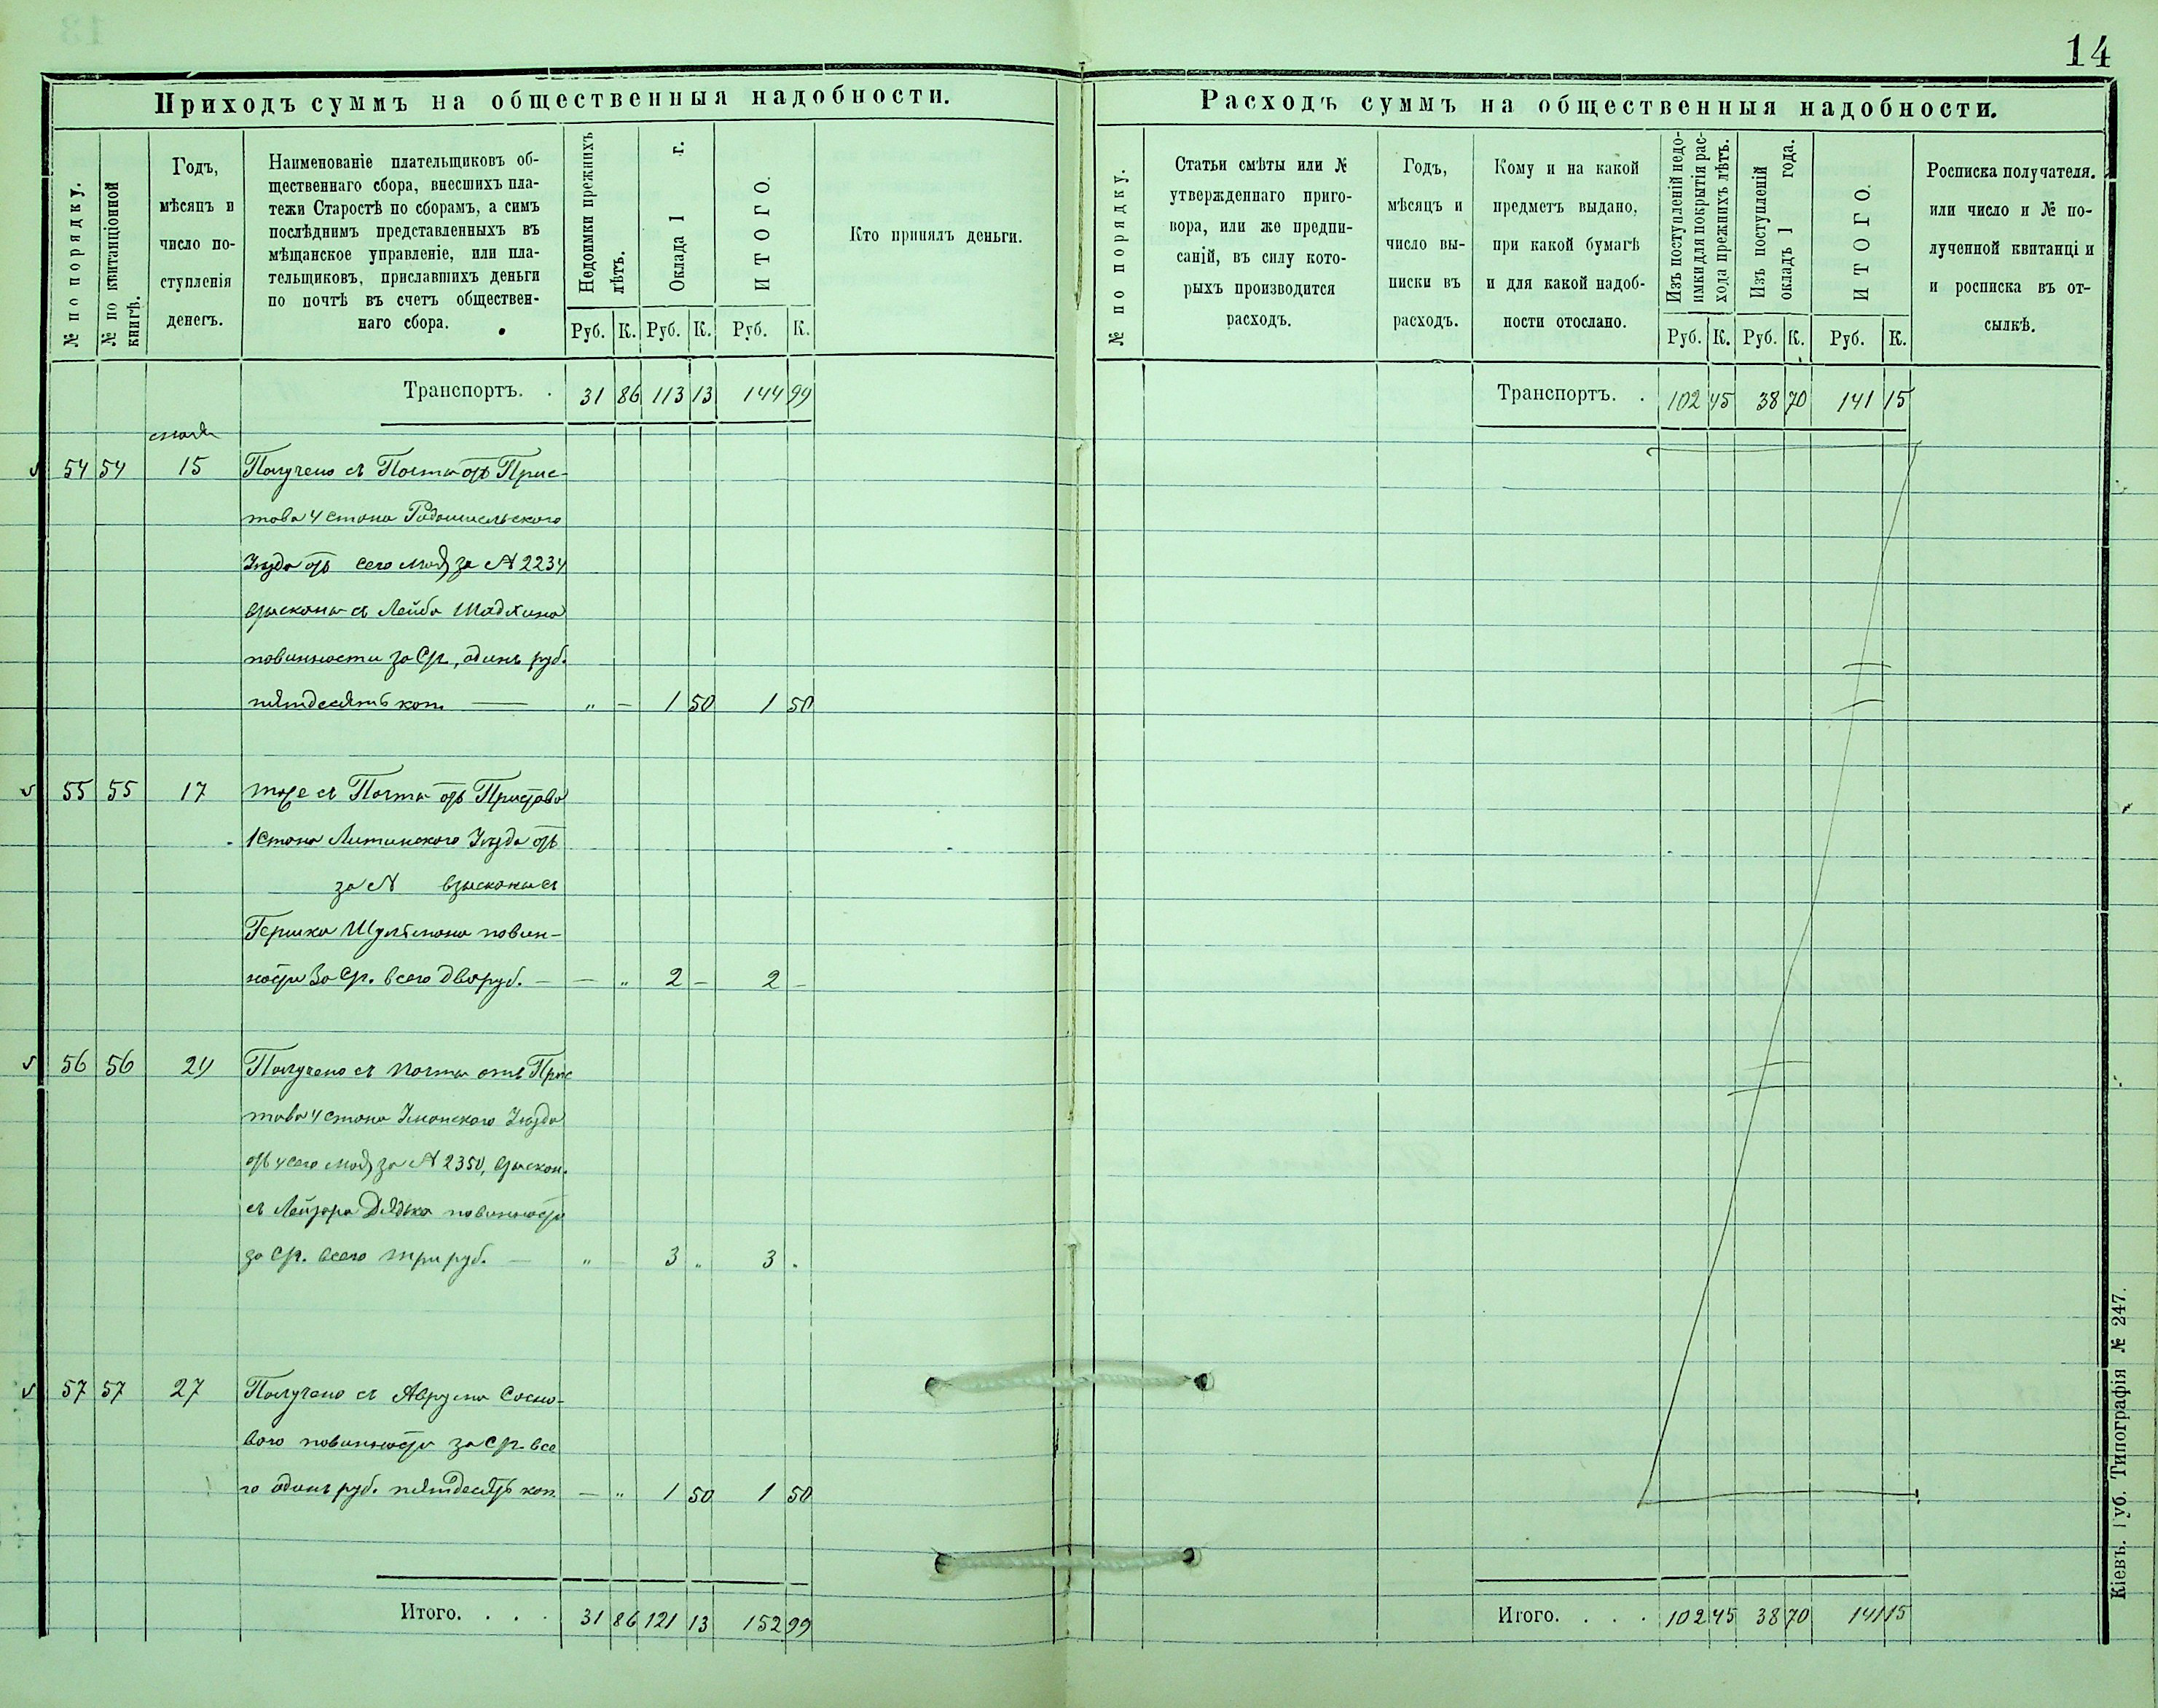 14
Приходъ суммъ на общественныя надобности.
№ по порядку.
№ по квитанціонной книгѣ.
Годъ,
мѣсяцъ и
число по-
ступленія
денегъ.
Наименованіе плательщиковъ об-
щественнаго сбора, внесшихъ пла-
тежи Старостѣ по сборамъ, а симъ
послѣднимъ представленныхъ въ
мѣщанское управленіе, или пла-
тельщиковъ, приславшихъ деньги
по почтѣ въ счетъ обществен-
наго сбора.
Недоимки прежнихъ лѣтъ.
Оклада 1 г.
ИТОГО.
Руб. К. Руб. К. Руб. К.
Кто принялъ деньги.
Транспортъ. . 31 86 113 13 144 99
54 54 15 Получено съ Почты отъ Прис-
това 4 стана Радомысльского
Уѣзда отъ сего мая за № 2234
взыскан съ Лейба Шадхина
повинности за Ср., одинъ руб.
пятдесятъ коп. — „ — 1 50 1 50
55 55 17 тоже съ Почты отъ Пристава
1 Стана Литинского Уѣзда отъ
за № взыскан съ
Гершка Шулемана повин-
ности за Ср. всего два руб. — — „ 2 — 2 —
56 56 24 Получено съ почты отъ Прис
тава 4 стана Уманского Уѣзда
отъ 4 сего мая за № 2350, взыскан.
съ Лейзора Дядька повинности
за Ср. всего три руб. — „ — 3 „ 3 „
57 57 27 Получено съ Аврума Сосно-
вого повинности за Ср. все
го одинъ руб. пятдесятъ коп. — „ 1 50 1 50
Итого. . . . 31 86 121 13 152 99
Расходъ суммъ на общественныя надобности.
№ по порядку.
Статьи смѣты или №
утвержденнаго приго-
вора, или же предпи-
саній, въ силу кото-
рыхъ производится
расходъ.
Годъ,
мѣсяцъ и
число вы-
писки въ
расходъ.
Кому и на какой
предметъ выдано,
при какой бумагѣ
и для какой надоб-
ности отослано.
Изъ поступленій недо-
имки для покрытія рас-
хода прежнихъ лѣтъ.
Изъ поступленій
окладъ 1 года.
ИТОГО.
Руб. К. Руб. К. Руб. К.
Росписка получателя.
или число и № по-
лученной квитанці и
и росписка въ от-
сылкѣ.
Транспортъ. . 102 45 38 70 141 15
Итого. . . . 102 45 38 70 141 15
Кіевъ. Губ. Типографія № 247.